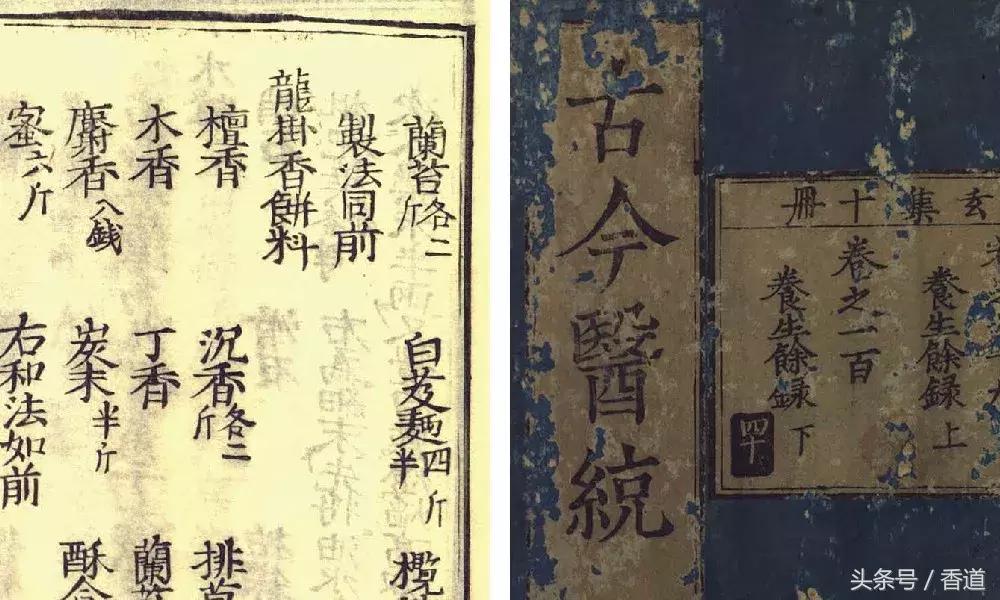 蘭苔各二斤 白芨麵四斤半 欖
製法同前
龍掛香餅料
檀香 沉香各二斤 排草
木香 丁香 蘭
麝香八錢 炭末半斤 酥合
蜜六斤 右和法如前
古今醫統
玄集十冊
養生餘録上
卷之一百
養生餘録下
四十
头条号 / 香道